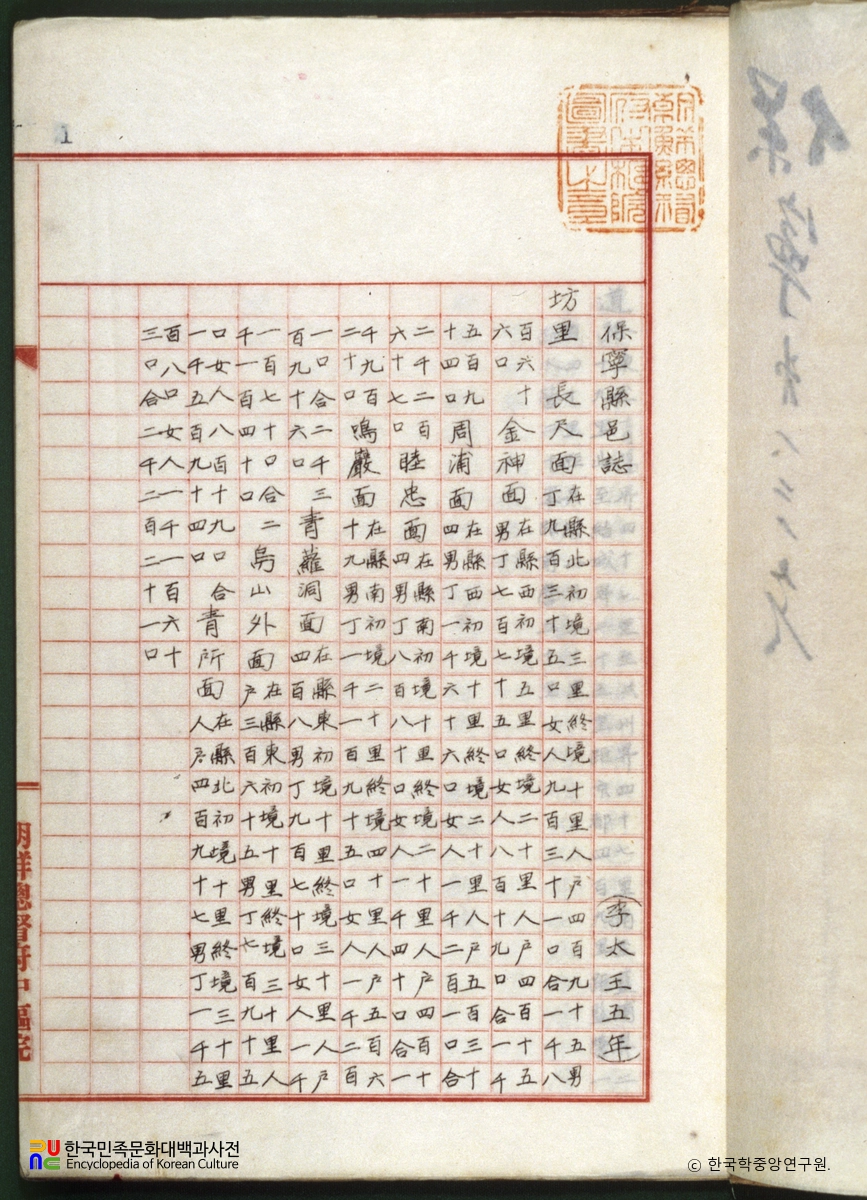 保寧縣邑誌 (李太王五年)
坊里 長尺面 在縣北初境三里終境十里人戶四百九十五男
丁九百三十五口女人九百三十一口合一千八
百六十
六口
金神面 在縣西初境五里終境二十里人戶四百十五
男丁七百十五口女人八百十九口合一千
五百九
十四口
周浦面 在縣西初境十里終境二十里人戶五百三十
四男丁一千六十六口女人一千二百一口合
二千二百
六十七口
睦忠面 在縣南初境十里終境二十里人戶四百十
四男丁八百八十口女人一千四十口合一
千九百
二十口
鳴巖面 在縣南初境二十里終境四十里人戶五百六
十九男丁一千一百九十五口女人一千二百
一口合二千三
百九十六口
青蘿洞面 在縣東初境十里終境三十里人戶
四百八男丁九百七十口女人一千
一百七十口合二
千一百四十口
烏山外面 在縣東初境十里終境三十里人
戶三百六十五男丁七百九十五
口女人八百十九口合
一千五百九十四口
青所面 在縣北初境十里終境三十里
人戶四百九十七男丁一千五
百八口女人一千一百六十
三口合二千二百二十一口
1
朝鮮總督府中樞院
한국민족문화대백과사전
Encyclopedia of Korean Culture
ⓒ 한국학중앙연구원.